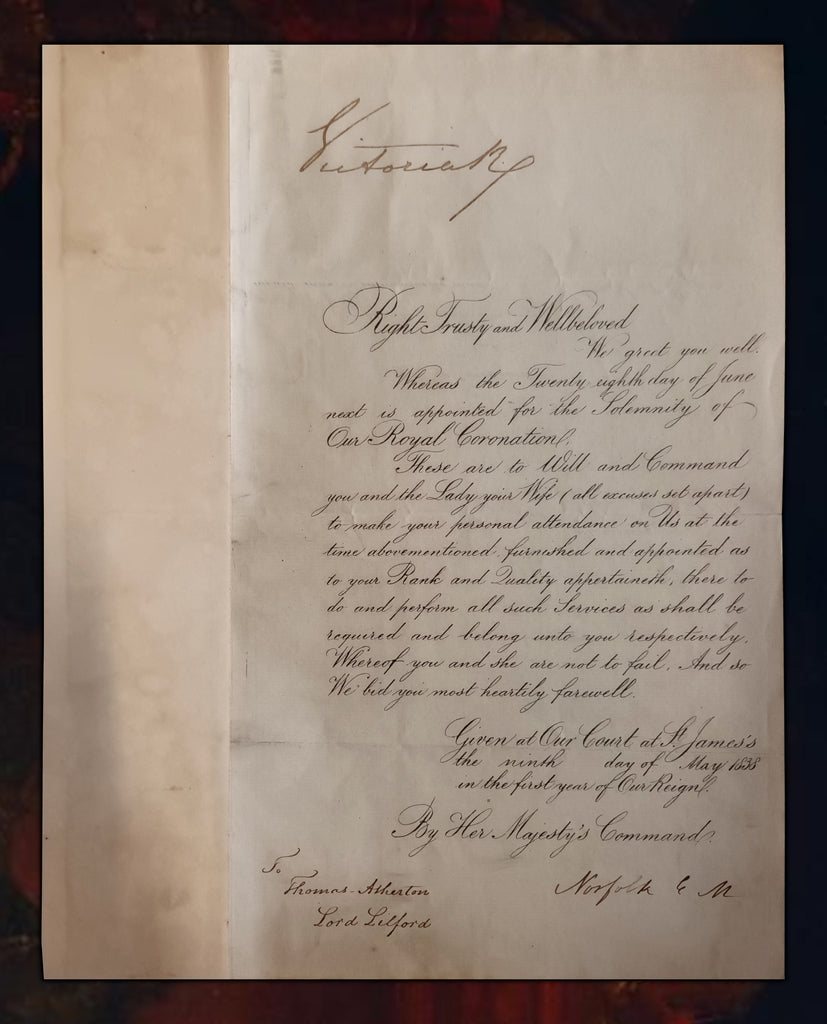 Victoria R
Right Trusty and Wellbeloved
We greet you well.
Whereas the Twenty eighth day of June
next is appointed for the Solemnity of
Our Royal Coronation.
These are to Will and Command
you and the Lady your Wife (all excuses set apart)
to make your personal attendance on Us at the
time abovementioned, furnished and appointed as
to your Rank and Quality appertaineth, there to
do and perform all such Services as shall be
required and belong unto you respectively.
Whereof you and she are not to fail. And so
We bid you most heartily farewell.
Given at Our Court at St. James's
the ninth day of May 1838
in the first year of Our Reign.
By Her Majesty's Command.
Norfolk E M
To
Thomas Atherton
Lord Lilford